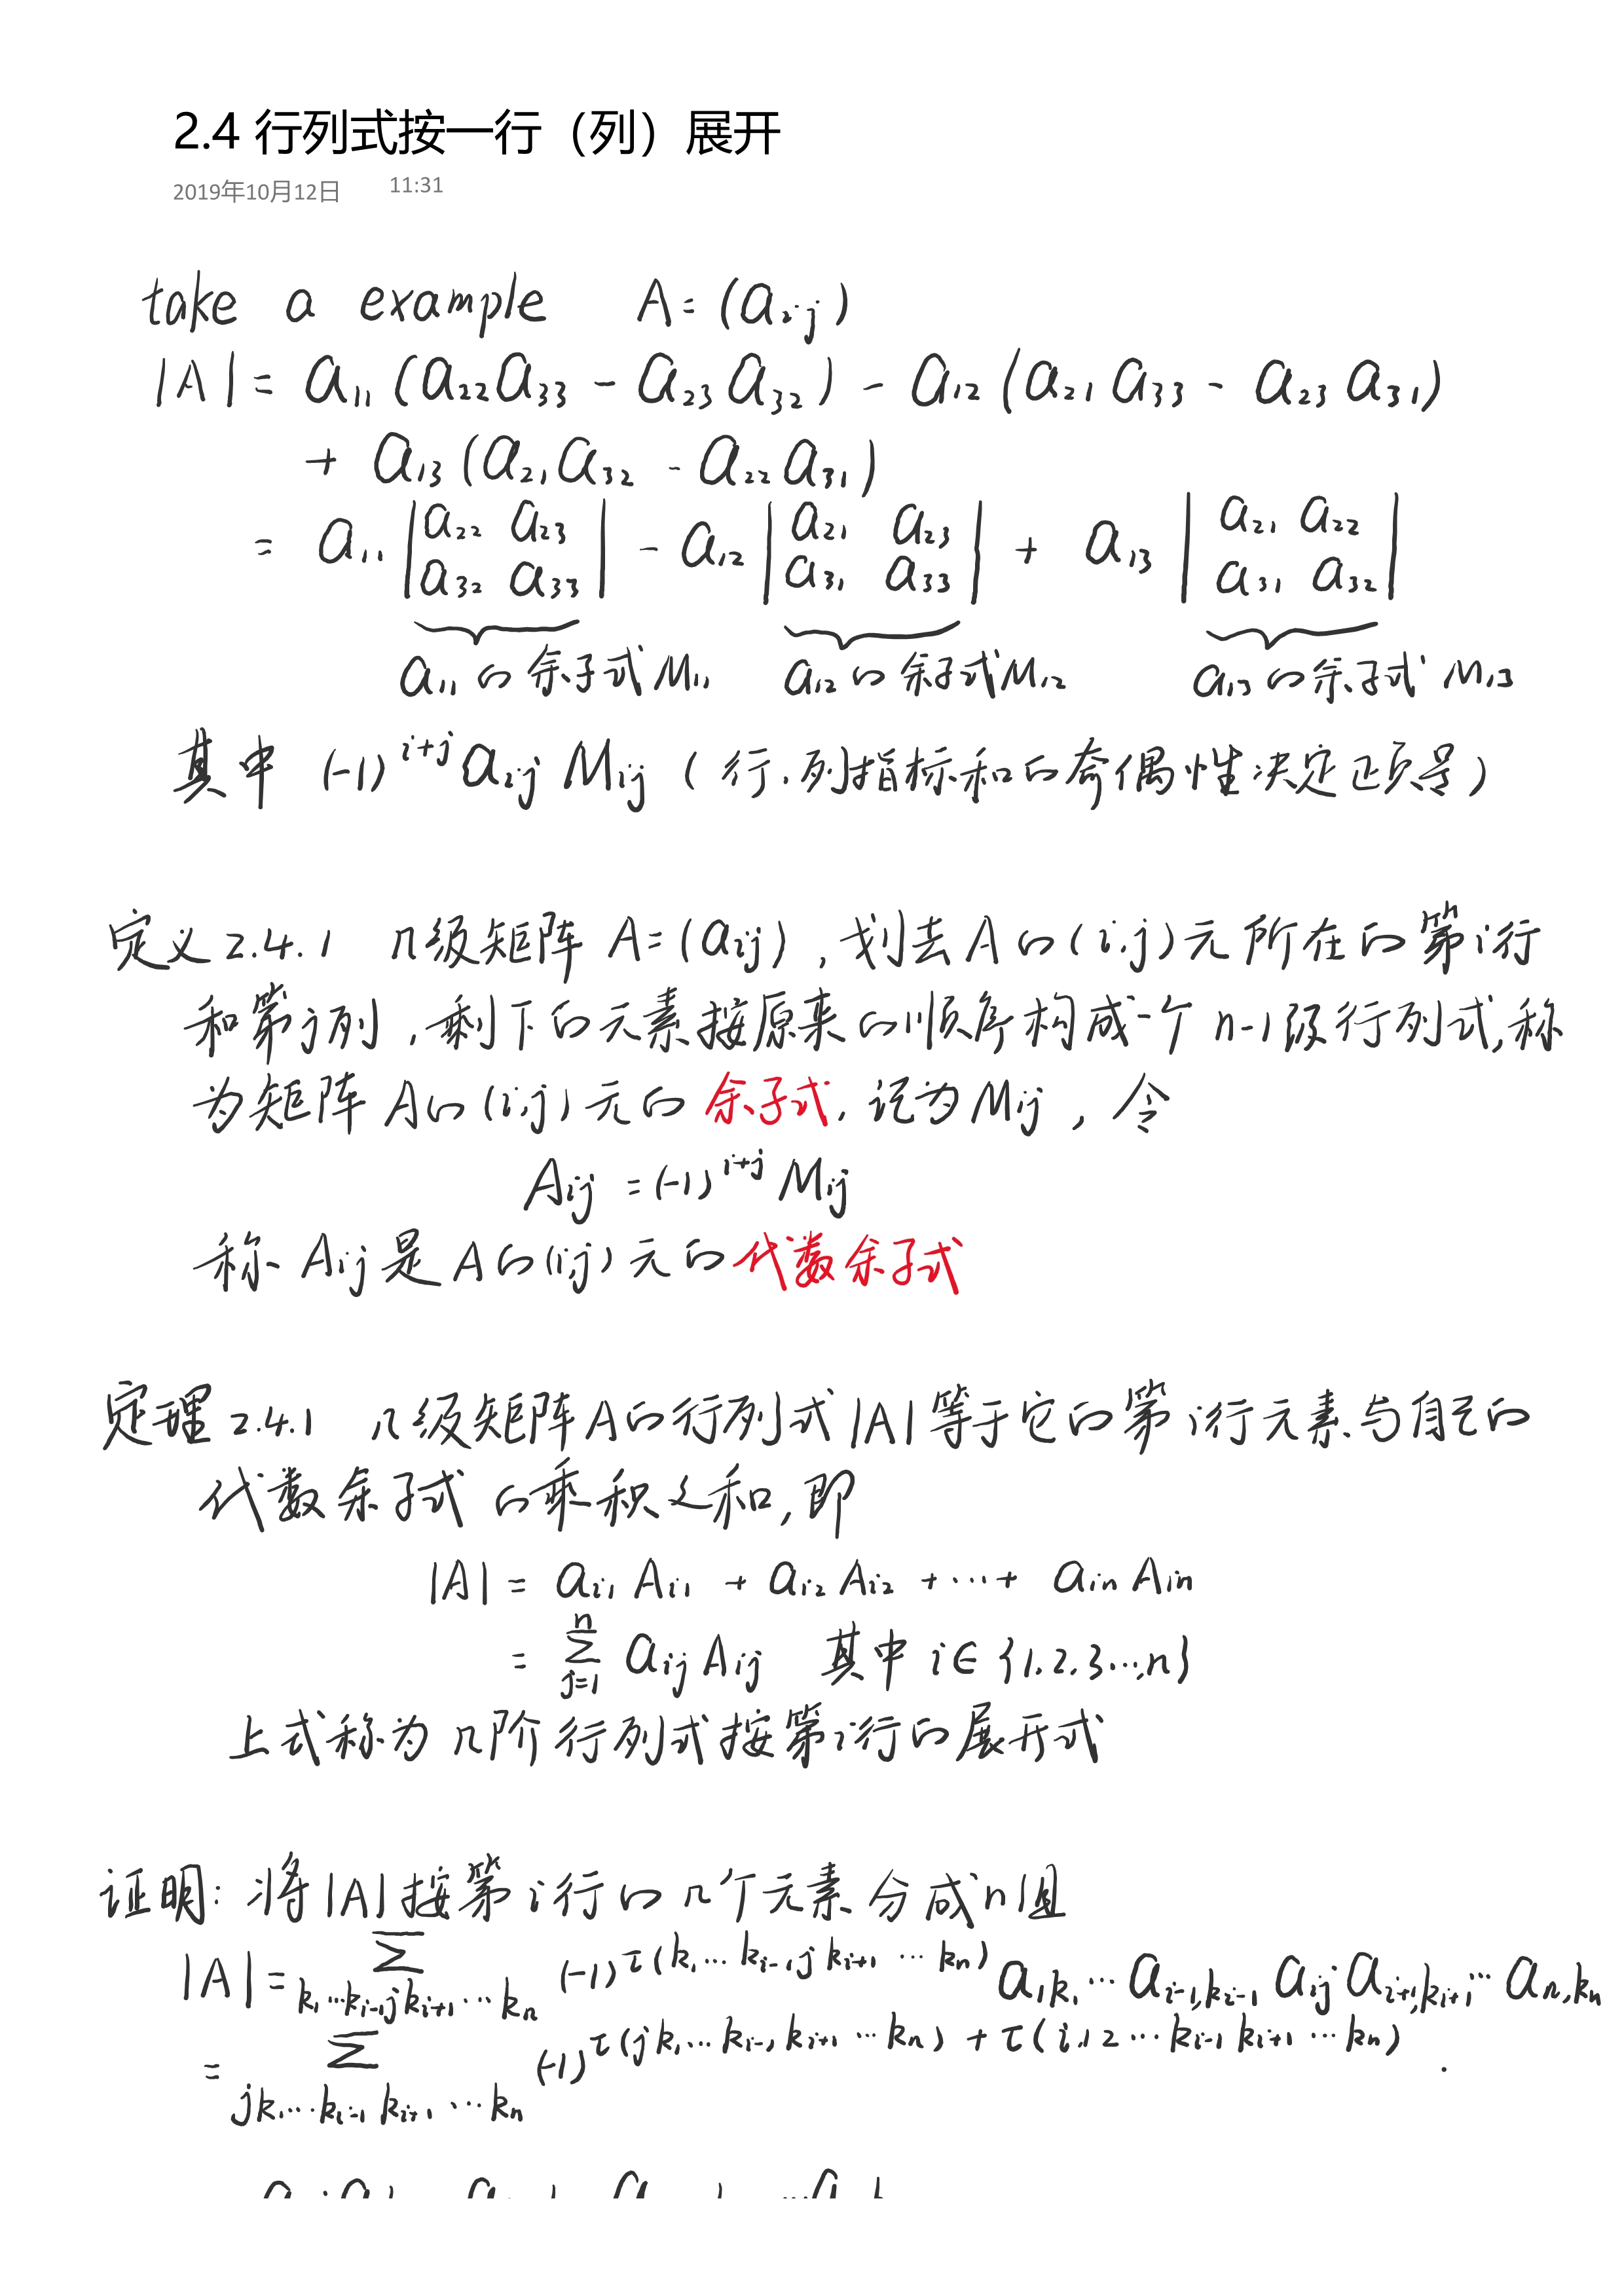 2.4 行列式按一行（列）展开
2019年10月12日 11:31
take a example A=(a_{ij})
|A| = a₁₁(a₂₂a₃₃ - a₂₃a₃₂) - a₁₂(a₂₁a₃₃ - a₂₃a₃₁)
+ a₁₃(a₂₁a₃₂ - a₂₂a₃₁)
= a₁₁ |a₂₂ a₂₃; a₃₂ a₃₃| - a₁₂ |a₂₁ a₂₃; a₃₁ a₃₃| + a₁₃ |a₂₁ a₂₂; a₃₁ a₃₂|
a₁₁的余子式M₁₁ a₁₂的余子式M₁₂ a₁₃的余子式M₁₃
其中 (-1)^{i+j} a_{ij} M_{ij} (行.列指标和的奇偶性决定正负号)
定义2.4.1 n级矩阵 A=(a_{ij}), 划去A的(i,j)元所在的第i行
和第j列,剩下的元素按原来的顺序构成一个n-1级行列式,称
为矩阵A的(i,j)元的余子式,记为M_{ij},令
A_{ij} = (-1)^{i+j} M_{ij}
称A_{ij}是A的(i,j)元的代数余子式
定理2.4.1 n级矩阵A的行列式|A|等于它的第i行元素与自己的
代数余子式的乘积之和,即
|A| = a_{i1}A_{i1} + a_{i2}A_{i2} + ⋯ + a_{in}A_{in}
= ∑_{j=1}^{n} a_{ij}A_{ij} 其中 i∈{1.2.3⋯,n}
上式称为n阶行列式按第i行的展开式
证明: 将|A|按第i行的n个元素分成n组
|A| = ∑_{k₁⋯k_{i-1}jk_{i+1}⋯k_n} (-1)^{τ(k₁⋯k_{i-1}jk_{i+1}⋯k_n)} a_{1k₁}⋯a_{i-1,k_{i-1}}a_{ij}a_{i+1,k_{i+1}}⋯a_{n,k_n}
= ∑_{jk₁⋯k_{i-1}k_{i+1}⋯k_n} (-1)^{τ(jk₁⋯k_{i-1}k_{i+1}⋯k_n) + τ(i,12⋯k_{i-1}k_{i+1}⋯k_n)} .